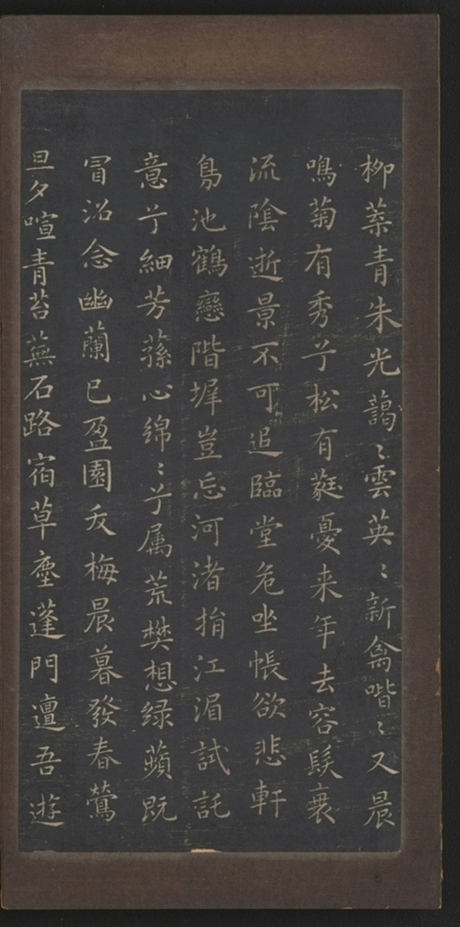 柳葉青朱光藹〻雲英〻新禽喈〻又晨
鳴菊有秀兮松有蕤憂来年去容髮衰
流陰逝景不可追臨堂危坐悵欲悲軒
鳧池鶴戀階墀豈忘河渚捐江湄試託
意兮細芳蓀心綿〻兮属荒樊想緑蘋既
冒沼念幽蘭已盈園夭梅晨暮發春鶯
旦夕喧青苔蕪石路宿草塵蓬門邅吾遊